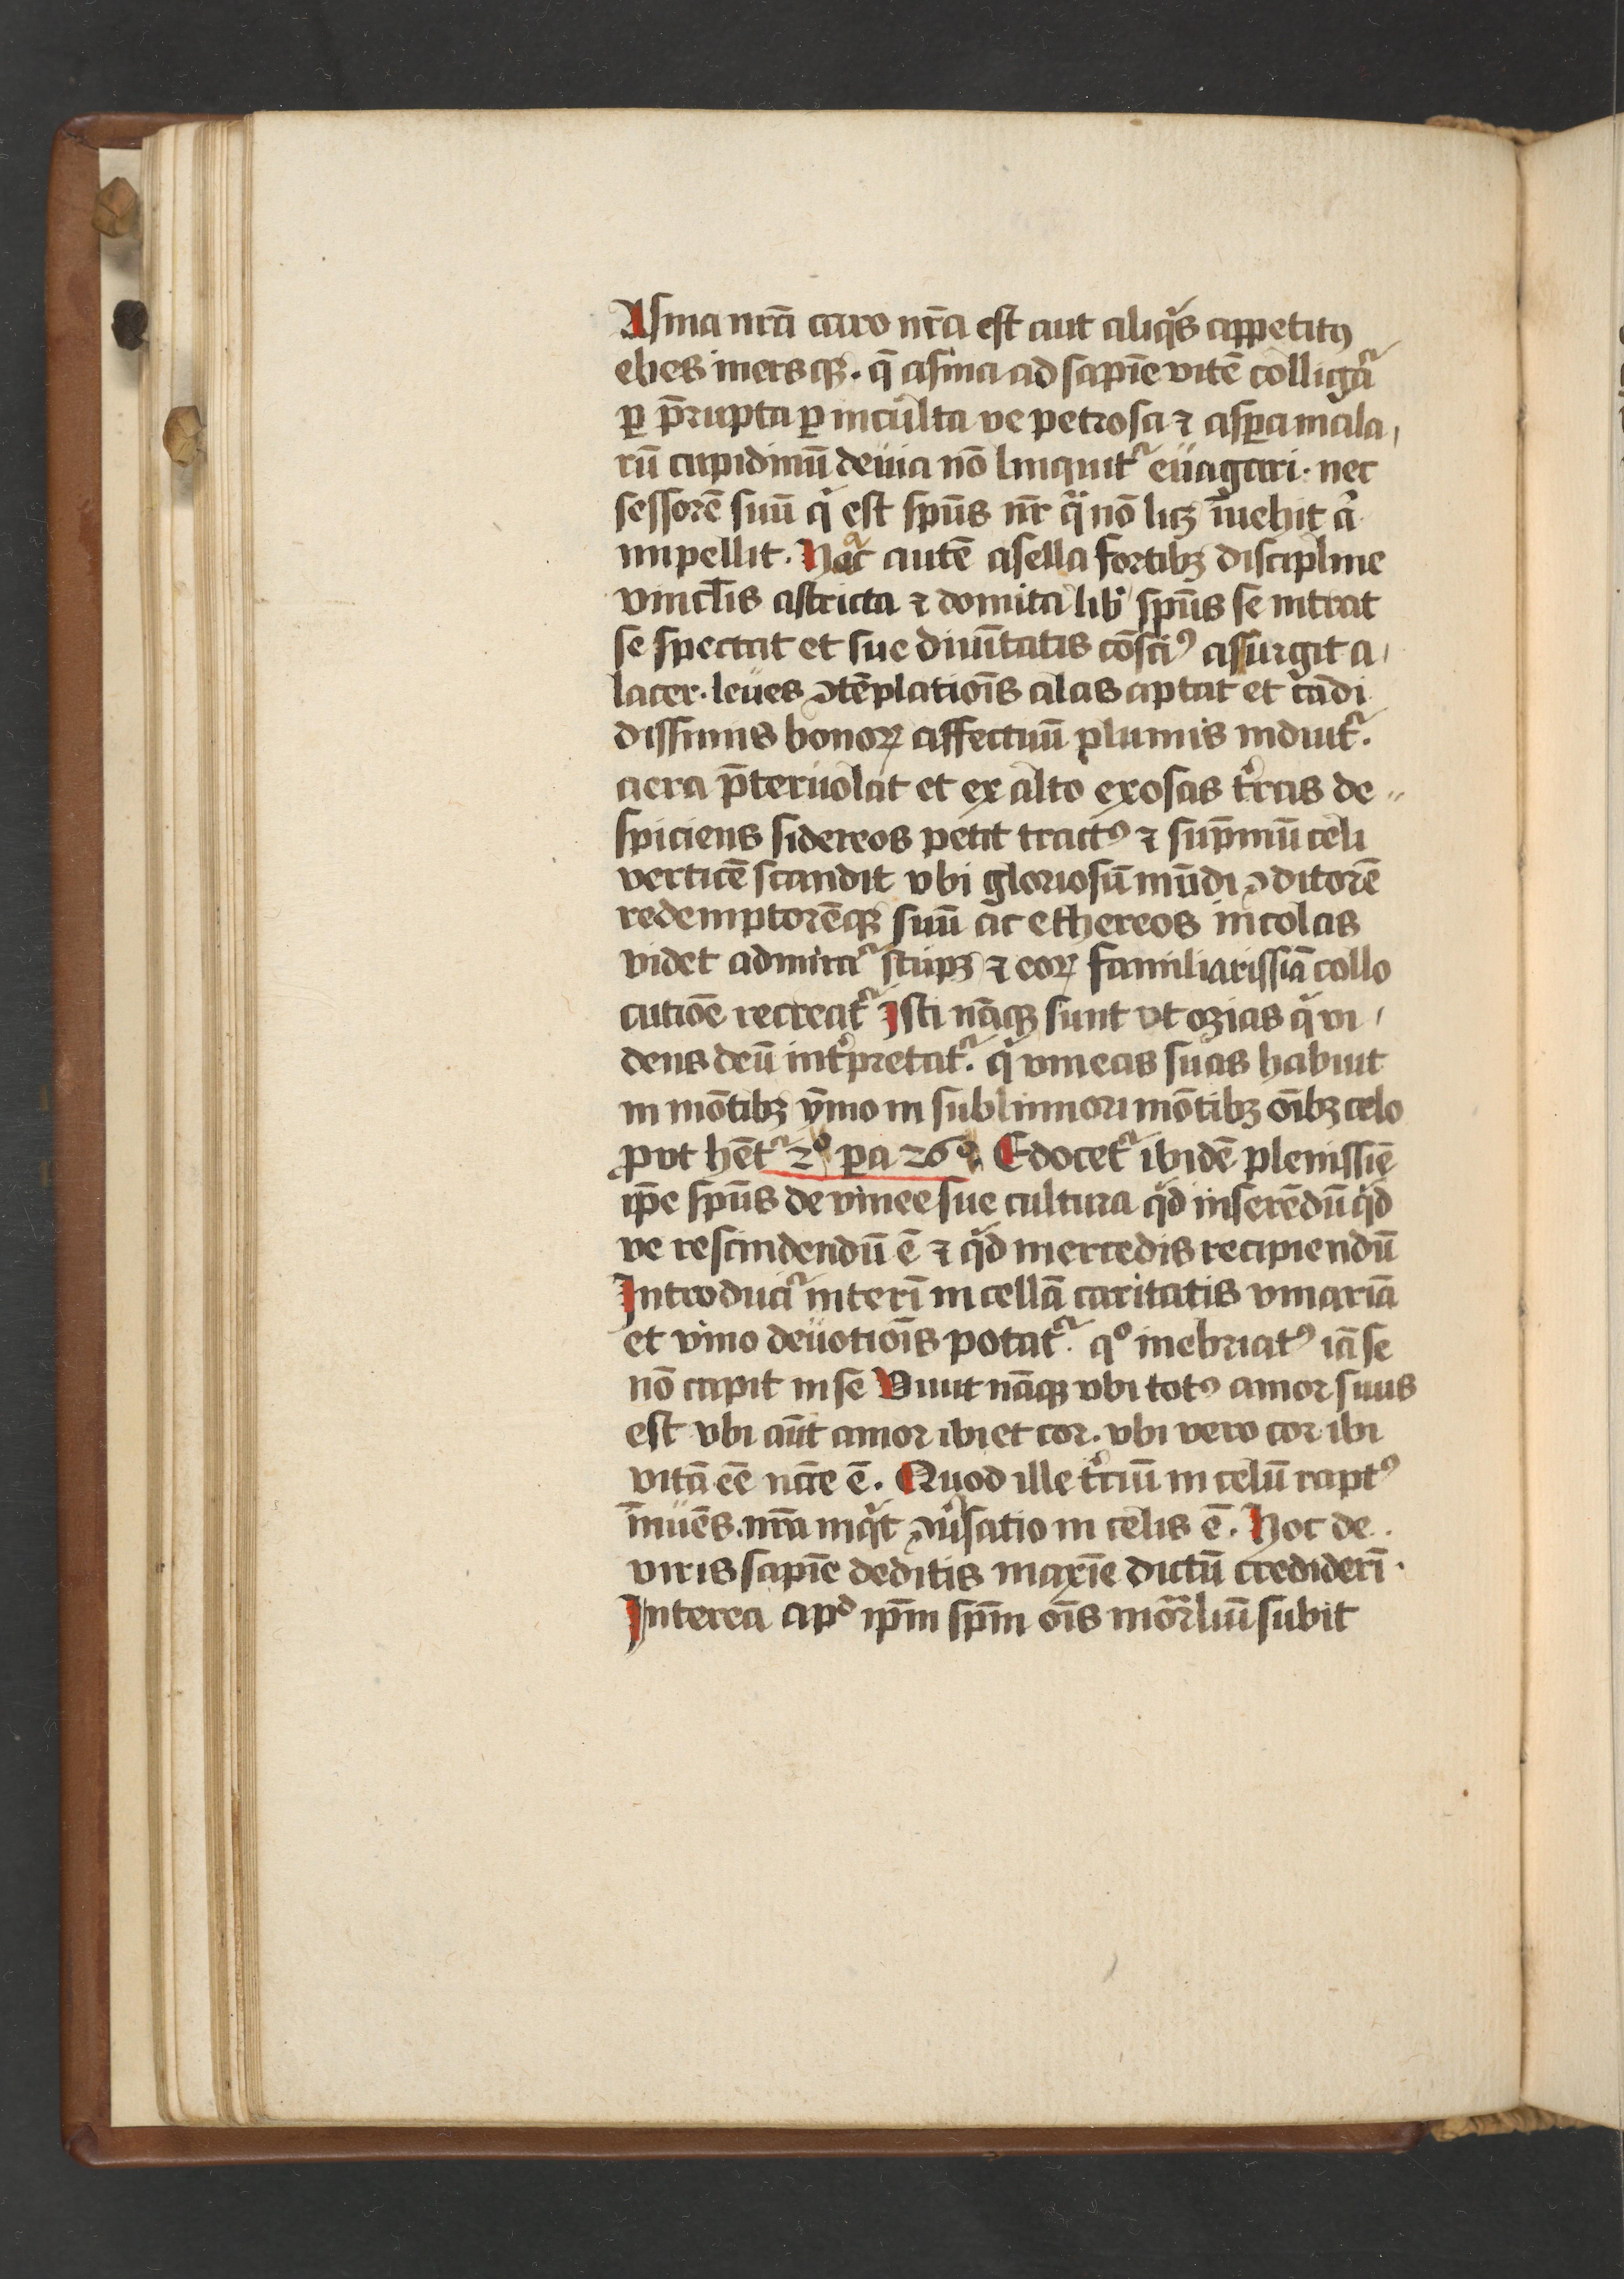 Asina nr̄a caro nr̄a est aut aliqͥs appetitꝰ
ebes inersqꝫ. q̄ asina ad sapīe vitē colligat᷑
ꝑ p̄rupta ꝑ inculta ve petrosa ⁊ asꝑa mala
rū cupidinū deuia nō linquit᷑ euagari. nec
sessorē suū qͥ est spūs nr̄ qͣ nō licꝫ īuehit aͧ
impellit. Hac autē asella fortibꝫ discipline
vinct̄is astricta ⁊ domita libͥ spūs se intrat
se spectat et sue diuītatis cōsciꝰ assurgit a
lacer. leues ꝯtēplatiōis alas aptat et cādi
dissimis bonoꝝ affectuū plumis induit᷑.
aera p̄teruolat et ex alto exosas tͥras de
spiciens sidereos petit tractꝰ ⁊ sup̄mū celi
verticē scandit vbi gloriosū mūdi ꝯditorē
redemptorēqꝫ suū ac ethereos incolas
videt admirat᷑ stupꝫ ⁊ eoꝝ familiarissīa collo
cutiōe recreat᷑ Isti nāqꝫ sunt vt ozias qͥ vi
dens deū intͥpretat᷑. qͥ vineas suas habuit
in mōtibꝫ ȳmo in sublimiori mōtibꝫ oībꝫ celo
ꝓut hēt᷑ 2º pa 26º. Edocet᷑ ibidē plenissīe
ip̄e spūs de vinee sue cultura qͥd inserēdū qͥd
ve rescindendū ē ⁊ qͥd mercedis recipiendū
Introducit᷑ interī in cellā caritatis vinariā
et vino deuotiōis potat᷑. qº inebriatꝰ iā se
nō capit in se Viuit nāqꝫ vbi totꝰ amor suus
est vbi aūt amor ibi et cor. vbi vero cor ibi
vitā eē nc̄cē ē. Quod ille tͥciū in celū raptꝰ
īnuēs. nr̄a inqͥt ꝯuͥsatio in celis ē. Hoc de
viris sapīe deditis maxīe dictū credideri᷑.
Interea apᵈ ip̄m sp̄m oīs mortͣliū subit